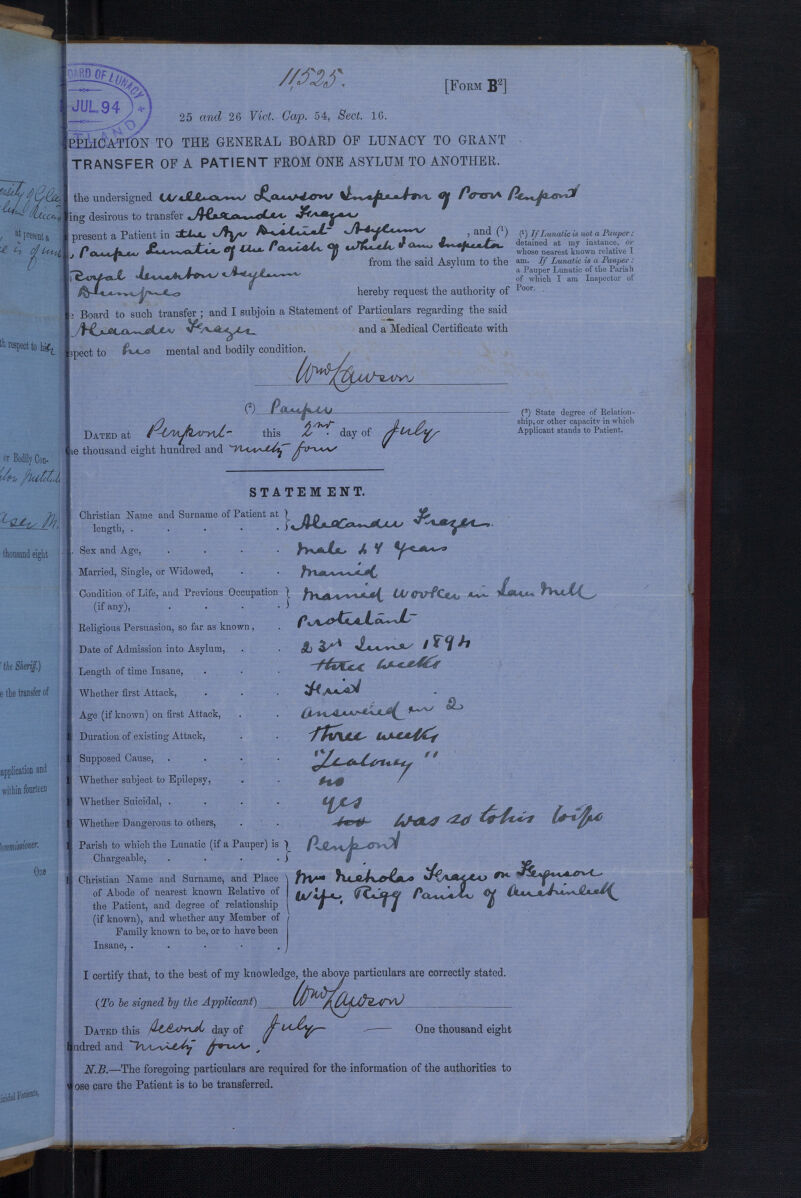 11,525.
[FORM B²]
BOARD OF LUNACY
JUL 94
25 and 26 Vict. Cap. 54, Sect. 16.
PPLICATION TO THE GENERAL BOARD OF LUNACY TO GRANT
TRANSFER OF A PATIENT FROM ONE ASYLUM TO ANOTHER.
the undersigned William Lawson Inspector of Poor Penpont
ing desirous to transfer Alexander Frazer
present a Patient in the Ayr District Asylum, and (¹)
Pauper Lunatic of the Parish of which I am Inspector
from the said Asylum to the
Royal Crichton Asylum
Dumfries hereby request the authority of
Board to such transfer; and I subjoin a Statement of Particulars regarding the said
Alexander Frazer and a Medical Certificate with
spect to his mental and bodily condition.
Wm Lawson
(²) Pauper
DATED at Penpont this 2nd day of July
ne thousand eight hundred and ninety four
(¹) If Lunatic is not a Pauper:
detained at my instance, or
whose nearest known relative I
am. If Lunatic is a Pauper:
a Pauper Lunatic of the Parish
of which I am Inspector of
Poor.
(²) State degree of Relation-
ship, or other capacity in which
Applicant stands to Patient.
STATEMENT.
Christian Name and Surname of Patient at
length, . Alexander Frazer.
Sex and Age, Male 44 Years
Married, Single, or Widowed, Married
Condition of Life, and Previous Occupation
(if any), Married Worker in Saw Mill
Religious Persuasion, so far as known, Protestant
Date of Admission into Asylum, 23rd June 1894
Length of time Insane, three weeks
Whether first Attack, First
Age (if known) on first Attack, answered in 2
Duration of existing Attack, three weeks
Supposed Cause, "Jealousy"
Whether subject to Epilepsy, no
Whether Suicidal, yes
Whether Dangerous to others, was so to his wife
Parish to which the Lunatic (if a Pauper) is
Chargeable, Penpont
Christian Name and Surname, and Place
of Abode of nearest known Relative of
the Patient, and degree of relationship
(if known), and whether any Member of
Family known to be, or to have been
Insane, .
Mrs Nicholas Frazer or Ferguson
Wife, Rigg Parish of Auchinleck
I certify that, to the best of my knowledge, the above particulars are correctly stated.
(To be signed by the Applicant) Wm Lawson
DATED this Second day of July — One thousand eight
ndred and ninety four.
N.B.—The foregoing particulars are required for the information of the authorities to
ose care the Patient is to be transferred.
at present a
th respect to his
or Bodily Con-
thousand eight
the Sheriff.)
e the transfer of
application and
within fourteen
ommissioner.
One